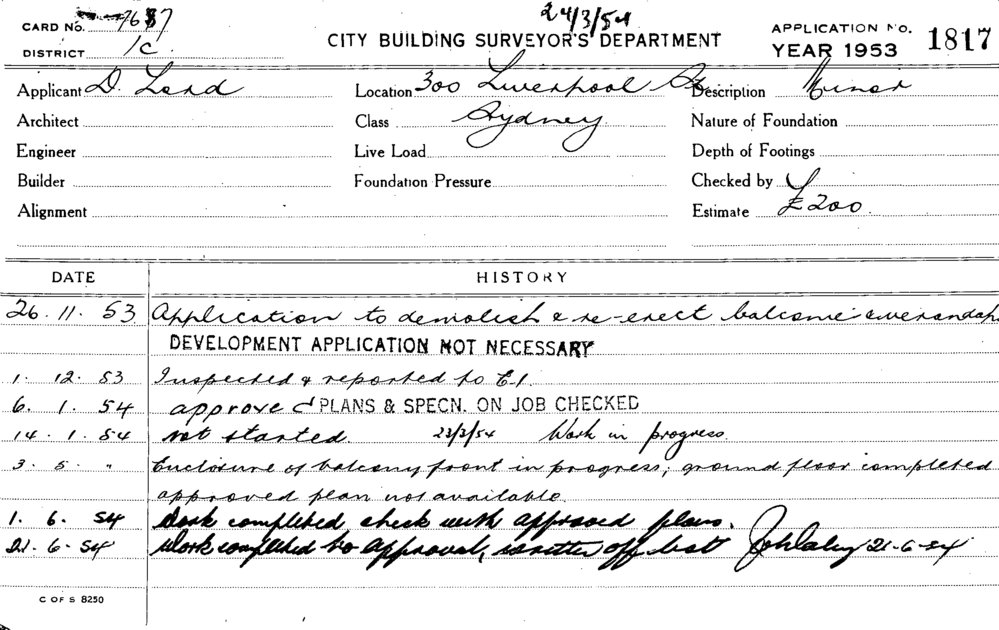 24/3/54
CARD No. 7687 CITY BUILDING SURVEYOR'S DEPARTMENT APPLICATION No. 1817
DISTRICT 1C. YEAR 1953
Applicant D. Lord Location 300 Liverpool St. Description Minor
Architect Class Sydney Nature of Foundation
Engineer Live Load Depth of Footings
Builder Foundation Pressure Checked by
Alignment Estimate £200.
DATE HISTORY
26. 11. 53 Application to demolish & re-erect balconie & verandah.
DEVELOPMENT APPLICATION NOT NECESSARY
1. 12. 53 Inspected & reported to E.I.
6. 1. 54 approved PLANS & SPECN. ON JOB CHECKED
14. 1. 54 not started. 22/3/54 Work in progress.
3. 5. " Enclosure of balcony front in progress; ground floor completed
approved plan not available.
1. 6. 54 Work completed, check with approved plans.
21. 6. 54 Work completed to approval, written off 21-6-54
C OF S 8250